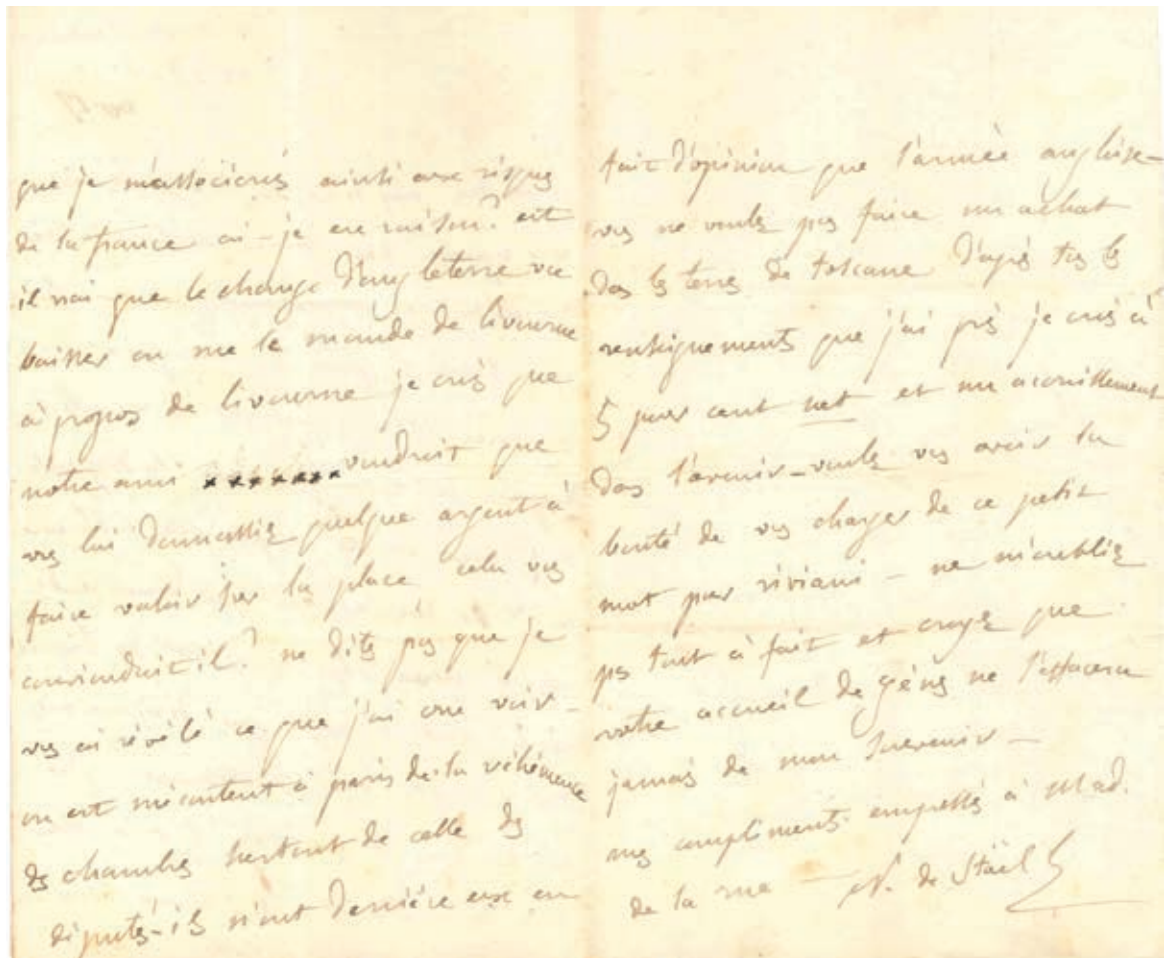 que je m'associerés ainsi aux risques
de la france ai-je eu raison? est
il vrai que le change d'angleterre va
baisser on me le mande de livourne
à propos de livourne je crois que
notre ami xxxxxxx voudroit que
vs lui donnassiez quelque argent à
faire valoir sur la place cela vs
conviendroit il? ne dites pas que je
vs ai révélé ce que j'ai cru voir -
on est mécontent à paris de la véhémence
des chambres surtout de celle des
députés - ils n'ont derrière eux en
fait d'opinion que l'armée angloise -
vs ne voulez pas faire un achat
dans les terres de toscane d'après ts les
renseignements que j'ai pris je crois à
5 pour cent net et un accroissement
dans l'avenir - voulez vs avoir la
bonté de vs charger de ce petit
mot pour viviani - ne m'oubliez
pas tout à fait et croyez que
votre accueil de gênes ne s'effacera
jamais de mon souvenir -
mes compliments empressés à Mad.
de la rue - N. de Staël